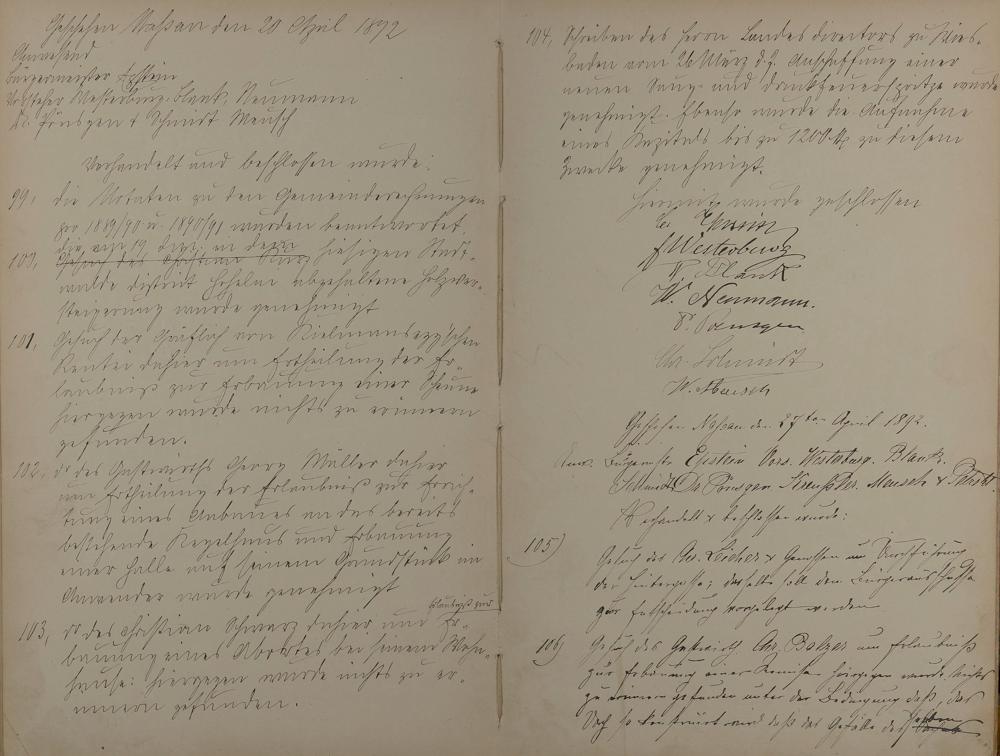 Geschehen Nassau den 20 April 1892
Anwesend
Bürgermeister Epstein
Vorsteher Westerburg, Blank, Neumann
Dr. Pönsgen & Schmidt Meusch
Verhandelt und beschlossen wurde:
99, die Notaten zu den Gemeinderechnungen
pro 1889/90 u. 1890/91 wurden beantwortet.
die am 19. in dem
100, Gesuch des Christian hiesigen Stadt-
walde District abgehaltene Holzver-
steigerung wurde genehmigt
101, Gesuch der Gräflich von Kielmansegg'schen
Rentei dahier um Ertheilung der Er-
laubniß zur Erbauung einer Scheune
hiergegen wurde nichts zu erinnern
gefunden.
102, do des Gastwirths Georg Müller dahier
um Ertheilung der Erlaubniß zur Errich-
tung eines Anbaues an das bereits
bestehende Kegelhaus und Erbauung
einer Halle auf seinem Grundstück im
Anwender wurde genehmigt
laubniß zur
103, do des Christian Schwarz dahier um Er-
bauung eines Abortes bei seinem Wohn-
hause: hiergegen wurde nichts zu er-
innern gefunden.
104, Schreiben des Herrn Landesdirectors zu Wies-
baden vom 26 März d.J. Anschaffung einer
neuen Saug- und Druckfeuerspritze wurde
genehmigt. Ebenso wurde die Aufnahme
eines Kapitals bis zu 1200 M zu diesem
Zwecke genehmigt.
Hiermit wurde geschlossen
Epstein
F Westerburg
Blank
W. Neumann.
Dr. Poensgen
Chr. Schmidt
W. Meusch
Geschehen Nassau den 27ten April 1892.
Anw. Bürgermstr Epstein Vors. Westerburg. Blank.
Schmidt, Dr. Pönsgen, Meusch &
Verhandelt & beschlossen wurde:
105) Gesuch des & Genossen um Durchführung
der ; dasselbe soll dem Bürgerausschusse
zur Entscheidung vorgelegt werden
106) Gesuch des Gastwirth Chr. Balzer um Erlaubniß
zur Erbauung einer Remise hiergegen wurde nichts
zu erinnern gefunden unter der Bedingung daß, das
Dach so konstruirt wird daß das Gefälle desselben